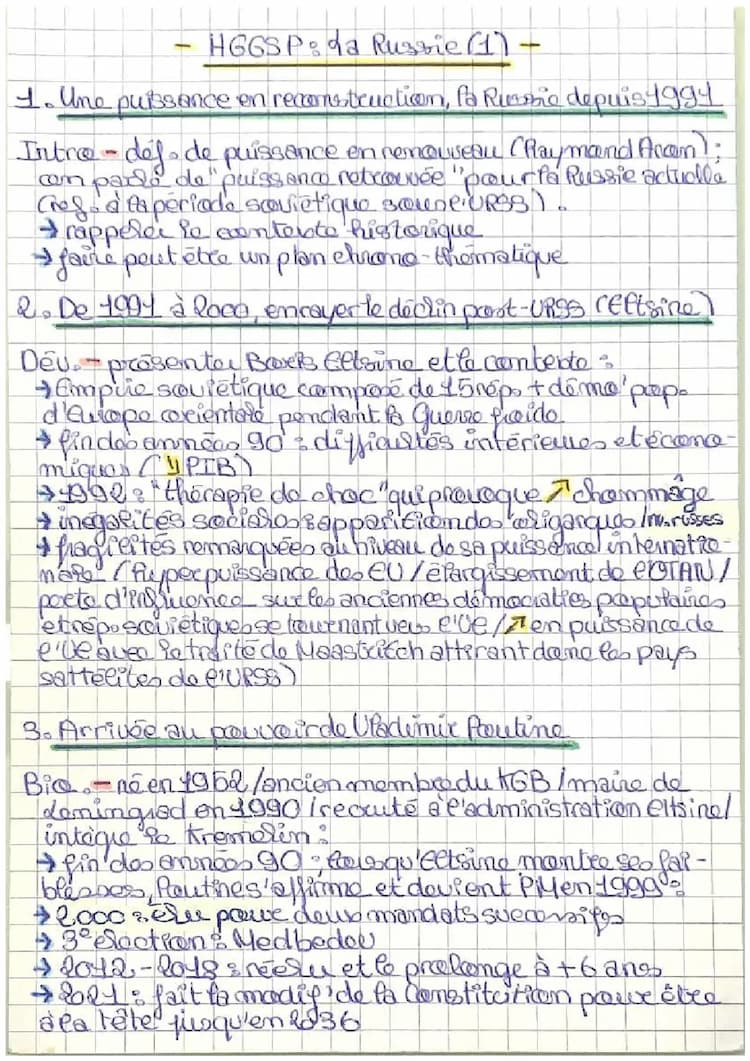 - HGGSP : La Russie (1) -
1. Une puissance en reconstruction, la Russie depuis 1991
Intro - déf. de puissance en renouveau (Raymond Aron) ;
on parle de "puissance retrouvée" pour la Russie actuelle
(réf. à la période soviétique sous l'URSS).
→ rappeler le contexte historique
→ faire peut être un plan chrono-thématique
2. De 1991 à 2000, enrayer le déclin post-URSS (Eltsine)
Dév. - présenter Boris Eltsine et le contexte :
→ Empire soviétique composé de 15 rép. + démo' pop.
d'Europe orientale pendant la Guerre froide
→ fin des années 90 : difficultés intérieures et écono-
miques (↘ PIB)
→ 1992 : "thérapie de choc" qui provoque ↗ chômmage
→ inégalités sociales : apparition des oligarques /nv. russes
→ fragilités remarquées au niveau de sa puissance internatio-
nale (hyperpuissance des EU / élargissement de l'OTAN /
perte d'influence sur les anciennes démocraties populaires
et rép. soviétiques se tournant vers l'UE / ↗ en puissance de
l'UE avec le traité de Maastritch attirant dans les pays
sattelites de l'URSS)
3. Arrivée au pouvoir de Vladimir Poutine
Bio. - né en 1952 / ancien membre du KGB / maire de
Leningrad en 1990 / recruté à l'administration Eltsine /
intègre le Kremelin :
→ fin des années 90 : lorsqu'Eltsine montre ses fai-
blesses, Poutine s'affirme et devient PM en 1999 :
→ 2000 : élu pour deux mandats successifs
→ 3e élection : Medbedev
→ 2012-2018 : réélu et le prolonge à + 6 ans
→ 2021 : fait la modif' de la Constitution pour être
à la tête jusqu'en 2036